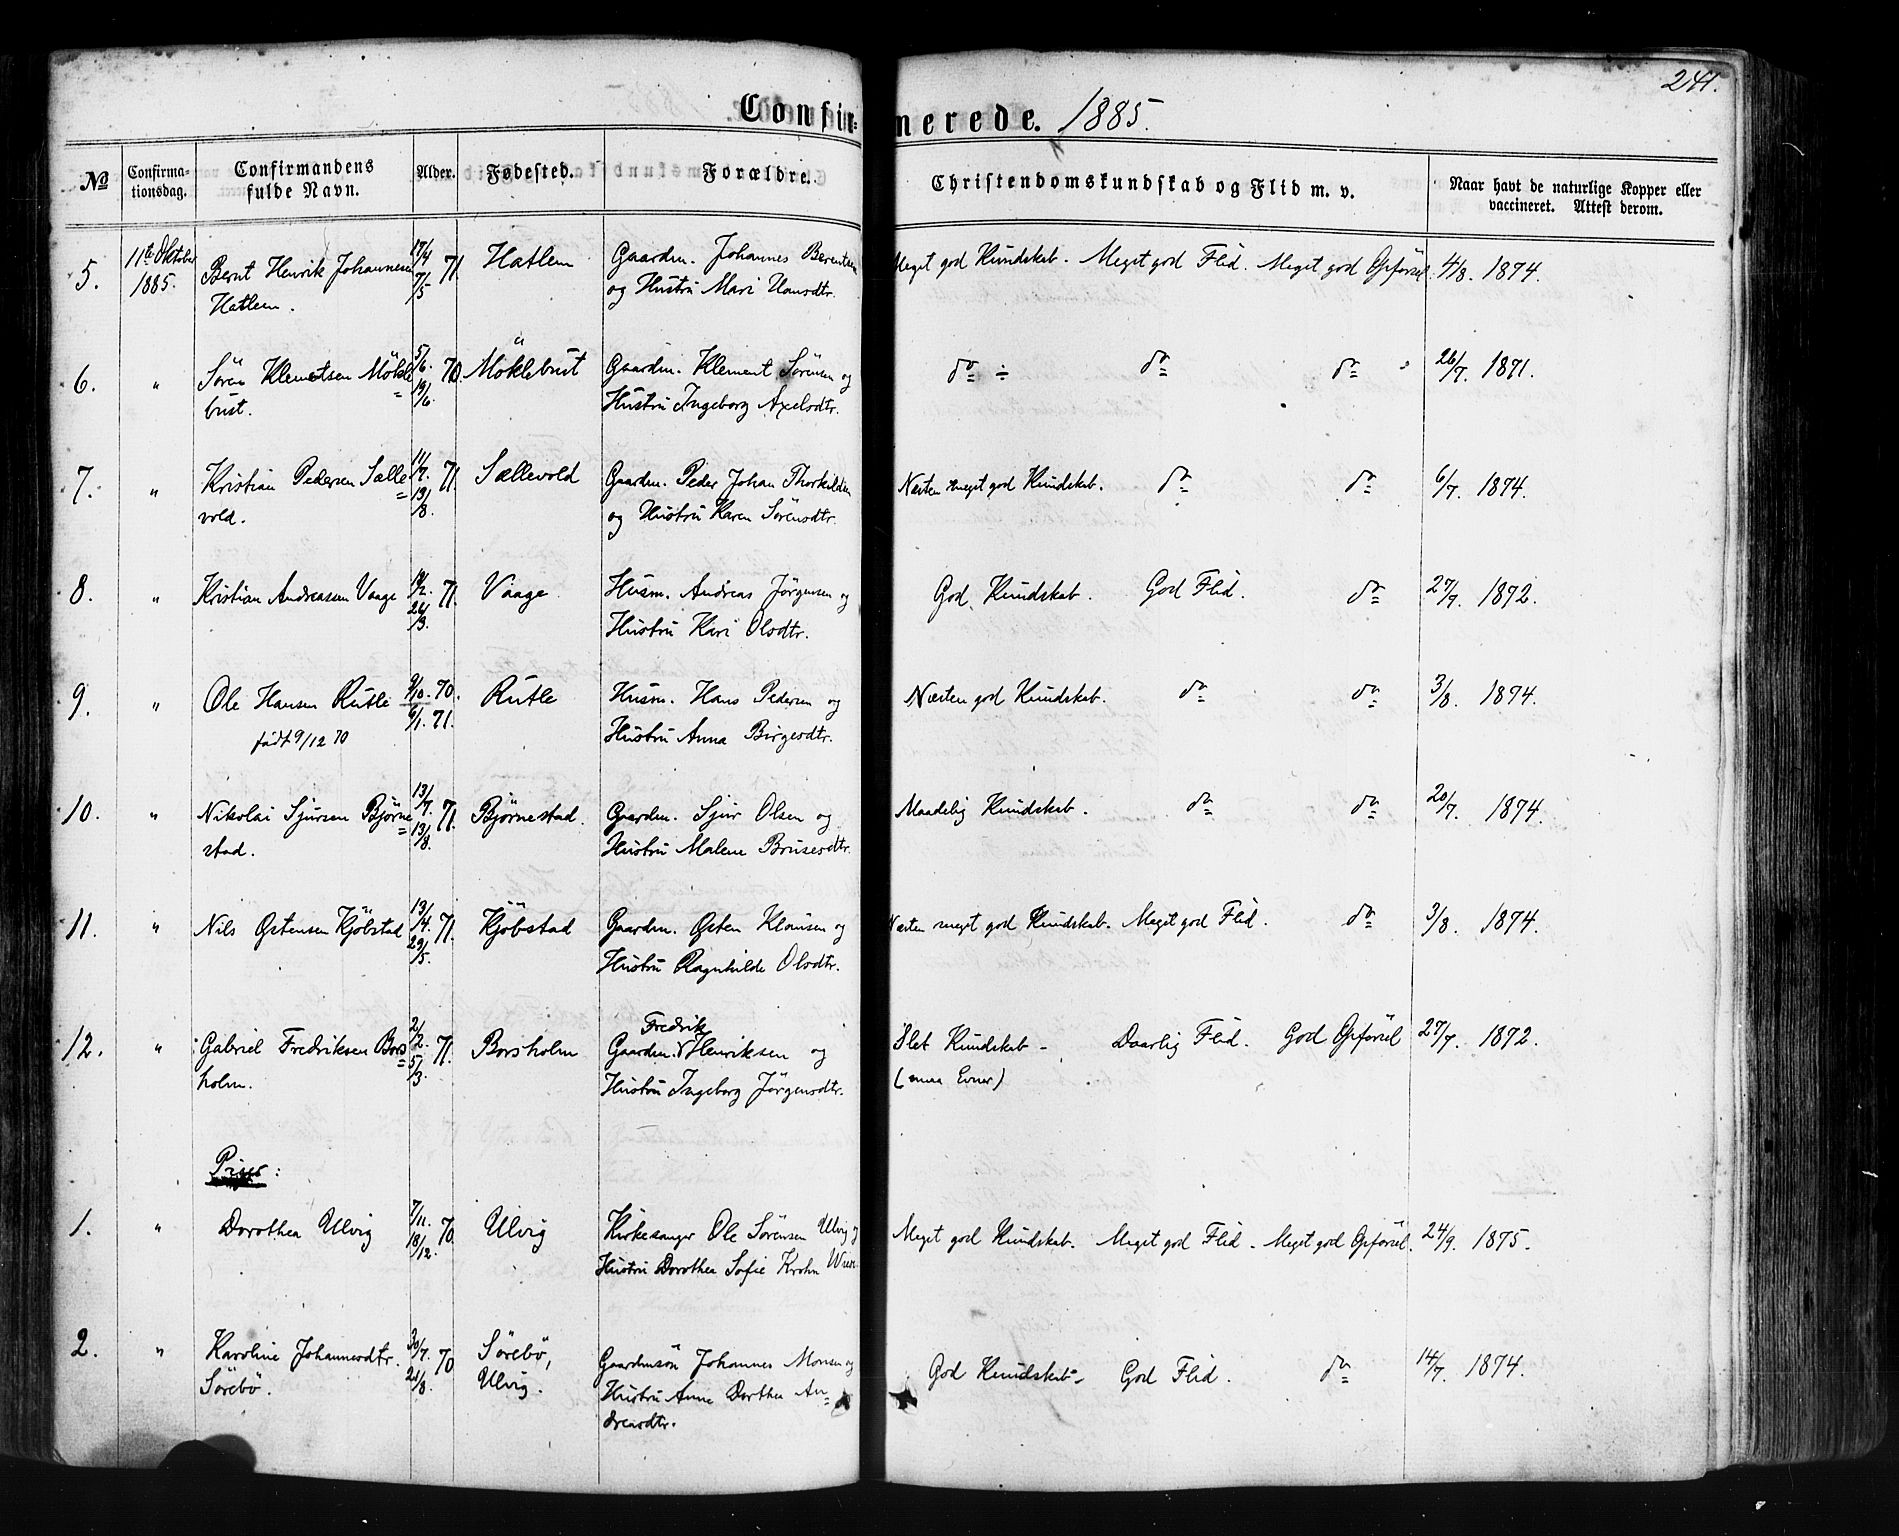 241.
Confir-merede. 1885.
№ Confirma-tionsdag. Confirmandens fulde Navn. Alder. Fødested. Forældre. Christendomskundskab og Flid m. v. Naar havt de naturlige Kopper eller vaccineret. Attest derom.
5. 11te Oktober 1885. Bernt Henrik Johannesen 17/4 7/5 71. Hatlem Gaardm. Johannes Berentsen Meget god Kundskab. Meget god Flid. Meget god Opførsel. 4/8. 1874.
Hatlem. og Hustru Mari Hansdtr.
6. " Sören Klemetsen Mökle= 5/6. 19/6. 70. Möklebust Gaardm. Klement Sörensen og do ÷ do do 26/7. 1871.
bust. Hustru Ingeborg Axelsdtr.
7. " Kristian Pedersen Sælle= 11/7. 13/8. 71. Sællevold Gaardm. Peder Johan Thorkildsen Næsten meget god Kundskab. do do 6/7. 1874.
vold. og Hustru Karen Sörensdtr.
8. " Kristian Andreasen Vaage 14/2. 24/3. 71. Vaage Husm. Andreas Jörgensen og God Kundskab. God Flid. do 27/9. 1872.
Hustru Kari Olsdtr.
9. " Ole Hansen Rutle 9/10. 70. 6/1. 71. Rutle Husm. Hans Pedersen og Næsten god Kundskab. do do 3/8. 1874.
født 9/12 70 Hustru Anna Birgesdtr.
10. " Nikolai Sjursen Bjørne= 13/7. 13/8. 71. Bjørnestad. Gaardm. Sjur Olsen og Maadelig Kundskab. do do 20/7. 1874.
stad. Hustru Malene Brusesdtr.
11. " Nils Østensen Kjöbstad 13/4. 29/5. 71. Kjöbstad Gaardm. Østen Klausen og Næsten meget god Kundskab. Meget god Flid. do 3/8. 1874.
Hustru Ragnhilde Olsdtr.
Fredrik
12. " Gabriel Fredriksen Bors= 2/2. 5/3. 71. Borsholm Gaardm. Henriksen og Slet Kundskab - Daarlig Flid. God Opførsel 27/7. 1872.
holm. Hustru Ingeborg Jörgensdtr. (smaa Evner)
Piger:
1. " Dorothea Ulvig 7/11. 18/12. 70 Ulvig Kirkesanger Ole Sörensen Ulvig og Meget god Kundskab. Meget god Flid. Meget god Opførsel. 24/9. 1875.
Hustru Dorothea Sofie Krohn
2. " Karoline Johannesdtr. 30/7. 21/8. 70 Sörebö, Gaardmsön Johannes Monsen og God Kundskab - God Flid. do 14/7. 1874.
Sörebö. Ulvig. Hustru Anne Dorthea An=
dreasdtr.